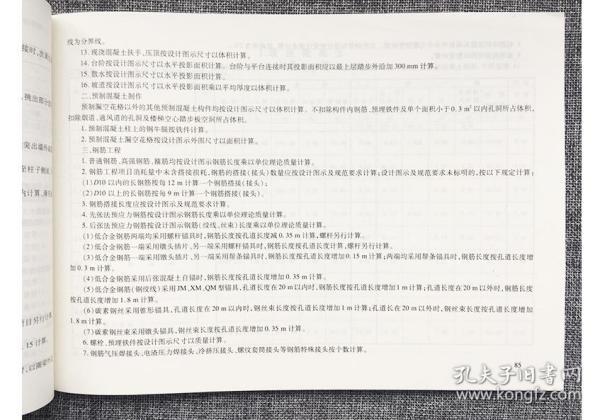 线为分界线。
13. 现浇混凝土扶手、压顶按设计图示尺寸以体积计算。
14. 台阶按设计图示尺寸以水平投影面积计算。台阶与平台连接时其投影面积应以最上层踏步外沿加 300 mm 计算。
15. 散水按设计图示尺寸以水平投影面积计算。
16. 坡道按设计图示尺寸以水平投影面积乘以平均厚度以体积计算。
二、预制混凝土制作
预制漏空花格以外的其他预制混凝土构件均按设计图示尺寸以体积计算。不扣除构件内钢筋、预埋铁件及单个面积小于 0.3 m² 以内孔洞所占体积,
扣除烟道、通风道的孔洞及楼梯空心踏步板空洞所占体积。
1. 预制混凝土柱上的钢牛腿按铁件计算。
2. 预制混凝土漏空花格按设计图示外围尺寸以面积计算。
三、钢筋工程
1. 普通钢筋、高强钢筋、箍筋均按设计图示钢筋长度乘以单位理论质量计算。
2. 钢筋工程项目消耗量中未含搭接损耗,钢筋的搭接(接头)数量应按设计图示及规范要求计算;设计图示及规范要求未标明的,按以下规定计算:
(1)D10 以内的长钢筋按每 12 m 计算一个钢筋搭接(接头);
(2)D10 以上的长钢筋按每 9 m 计算一个钢筋搭接(接头)。
3. 钢筋搭接长度应按设计图示及规范要求计算。
4. 先张法预应力钢筋按设计图示钢筋长度乘以单位理论质量计算。
5. 后张法预应力钢筋按设计图示钢筋(绞线、丝束)长度乘以单位理论质量计算。
(1)低合金钢筋两端均采用螺杆锚具时,钢筋长度按孔道长度减 0.35 m 计算,螺杆另行计算。
(2)低合金钢筋一端采用镦头插片、另一端采用螺杆锚具时,钢筋长度按孔道长度计算,螺杆另行计算。
(3)低合金钢筋一端采用镦头插片、另一端采用帮条锚具时,钢筋长度按孔道长度增加 0.15 m 计算;两端均采用帮条锚具时,钢筋长度按孔道长度增
加 0.3 m 计算。
(4)低合金钢筋采用后张混凝土自锚时,钢筋长度按孔道长度增加 0.35 m 计算。
(5)低合金钢筋(钢绞线)采用 JM、XM、QM 型锚具,孔道长度在 20 m 以内时,钢筋长度按孔道长度增加 1 m 计算;孔道长度在 20 m 以外时,钢筋长度按孔
道长度增加 1.8 m 计算。
(6)碳素钢丝采用锥形锚具,孔道长度在 20 m 以内时,钢丝束长度按孔道长度增加 1 m 计算;孔道长在 20 m 以外时,钢丝束长度按孔道长度增加
1.8 m 计算。
(7)碳素钢丝束采用镦头锚具,钢丝束长度按孔道长度增加 0.35 m 计算。
6. 螺栓、预埋铁件按设计图示尺寸以质量计算。
7. 钢筋气压焊接头、电渣压力焊接头、冷挤压接头、螺纹套筒接头等钢筋特殊接头按个数计算。
孔夫子旧书网